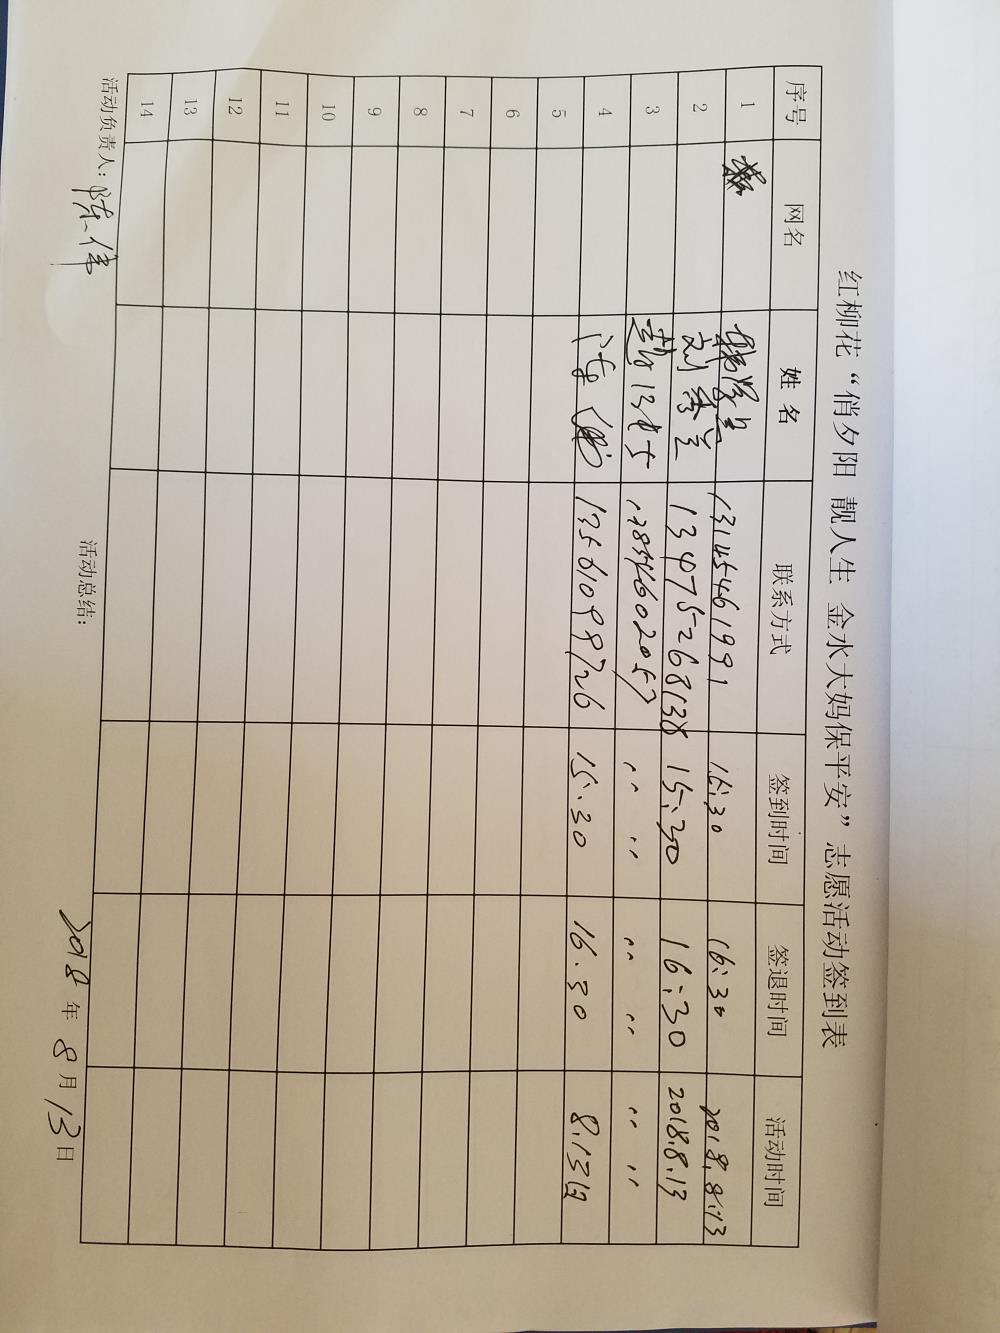 红柳花“俏夕阳 靓人生 金水大妈保平安”志愿活动签到表
序号 网名 姓名 联系方式 签到时间 签退时间 活动时间
1 13145461991 15:30 16:30 2018.8.13
2 刘秀兰 13475268138 15:30 16:30 2018.8.13
3 〃 〃 〃 〃 〃 〃
4 13561099726 15:30 16:30 8.13日
5
6
7
8
9
10
11
12
13
14
活动负责人：陈伟 活动总结：
2018年8月13日